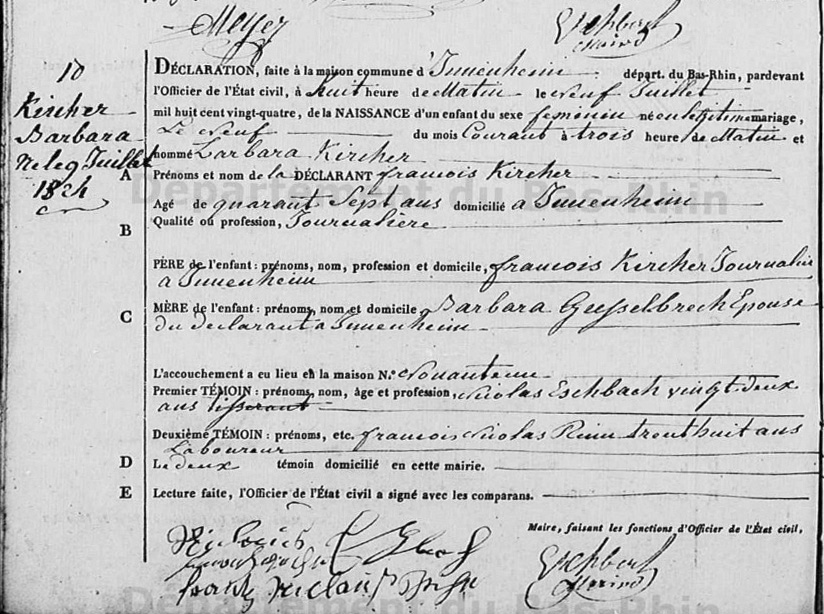 Meyer
Maire
10
Kircher
Barbara
Ne le 9 Juillet
1824
DÉCLARATION, faite à la maison commune d'Innenheim départ. du Bas-Rhin, pardevant
l'Officier de l'État civil, à huit heure de Matin le neuf Juillet
mil huit cent vingt-quatre, de la NAISSANCE d'un enfant du sexe feminin né en legitime mariage,
Le neuf du mois Courant à trois heure de Matin et
nommé Barbara Kircher
A Prénoms et nom de la DÉCLARANT francois Kircher
Agé de quarant Sept ans domicilié a Innenheim
B Qualité ou profession, Journalière
PÈRE de l'enfant : prénoms, nom, profession et domicile, francois Kircher Journalier
a Innenheim
C MÈRE de l'enfant : prénoms, nom et domicile Barbara Gusselbrech Epouse
du declarant a Innenheim
L'accouchement a eu lieu en la maison N.º
Premier TÉMOIN : prénoms, nom, âge et profession, Nicolas Eschbach vingt deux
ans tisserant
Deuxième TÉMOIN : prénoms, etc. francois Nicolas trent huit ans
Laboureur
D Le deux témoin domicilié en cette mairie.
E Lecture faite, l'Officier de l'État civil a signé avec les comparans.
Maire, faisant les fonctions d'Officier de l'État civil,
Maire
Département du Bas-Rhin
Département du Bas-Rhin